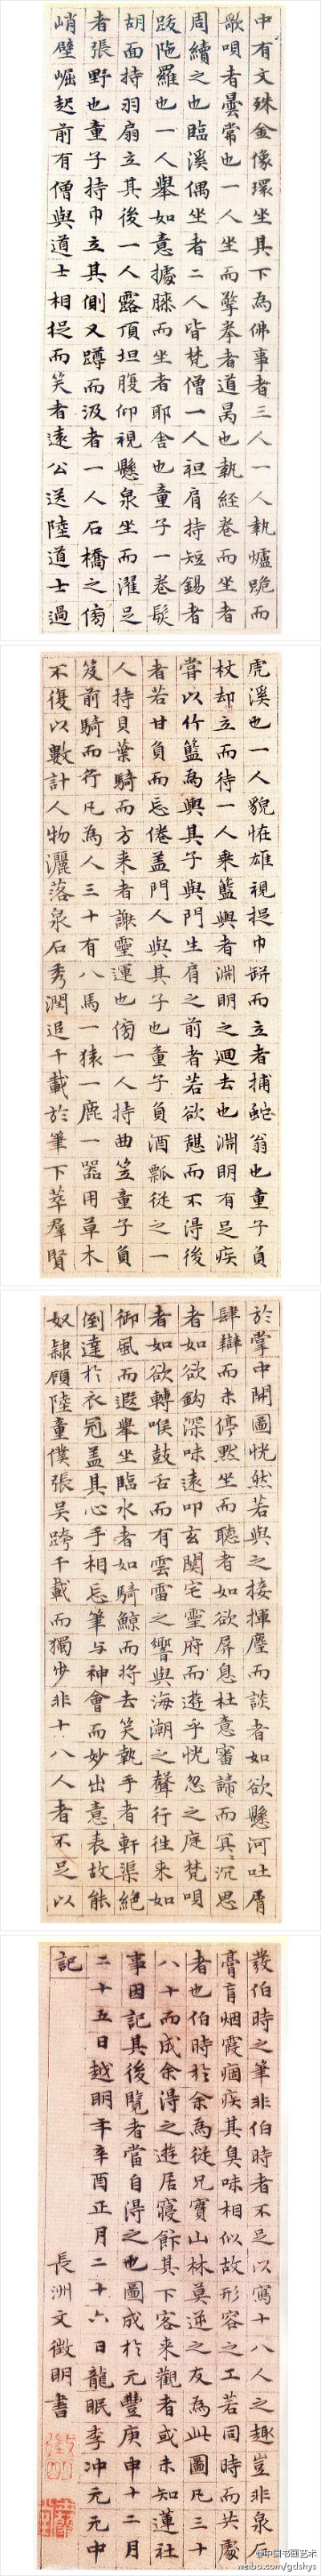 中有文殊金像環坐其下為佛事者三人一人執爐跪而
歌唄者曇常也一人坐而擎拳者道昺也執經卷而坐者
周續之也臨溪偶坐者二人皆梵僧一人袒肩持短錫者
跋陁羅也一人舉如意據膝而坐者耶舍也童子一卷髮
胡面持羽扇立其後一人露頂坦腹仰視懸泉坐而濯足
者張野也童子持巾立其側又蹲而汲者一人石橋之傍
峭壁崛起前有僧與道士相捉而笑者遠公送陸道士過
虎溪也一人貌怪雄視捉巾缾而立者捕蛇翁也童子負
杖却立而待一人乗籃輿者淵明之廻去也淵明有足疾
嘗以竹籃為輿其子與門生肩之前者若欲憇而不得後
者若甘負而忘倦盖門人與其子也童子負酒瓢従之一
人持貝葉騎而方来者謝靈運也傍一人持曲笠童子負
笈前騎而行凡為人三十有八馬一猿一鹿一器用草木
不復以數計人物灑落泉石秀潤追千載於筆下萃羣賢
於掌中開圖恍然若與之接揮麈而談者如欲懸河吐屑
肆辯而未停黙坐而聽者如欲屏息杜意審諦而冥沉思
者如欲鈎深味遠叩玄関宅靈府而遊乎恍忽之庭梵唄
者如欲轉喉鼓舌而有雲雷之響與海潮之聲行徃来如
御風而遐舉坐臨水者如騎鯨而将去笑執手者軒渠絶
倒達於衣冠盖其心手相忘筆与神會而妙出意表故能
奴隸顧陸童僕張吴跨千載而獨步非十八人者不足以
發伯時之筆非伯時者不足以寫十八人之趣豈非泉石
膏肓烟霞痼疾其臭味相似故形容之工若同時而共處
者也伯時於余為従兄實山林莫逆之友為此圖凡三十
八十而成余得之遊居寢飭其下客来觀者或未知蓮社
事因記其後覽者當自得之也圖成於元豐庚申十二月
二十五日越明年辛酉正月二十六日龍眠李冲元元中
記 長洲文徴明書
@中国书画艺术
weibo.com/gdshys